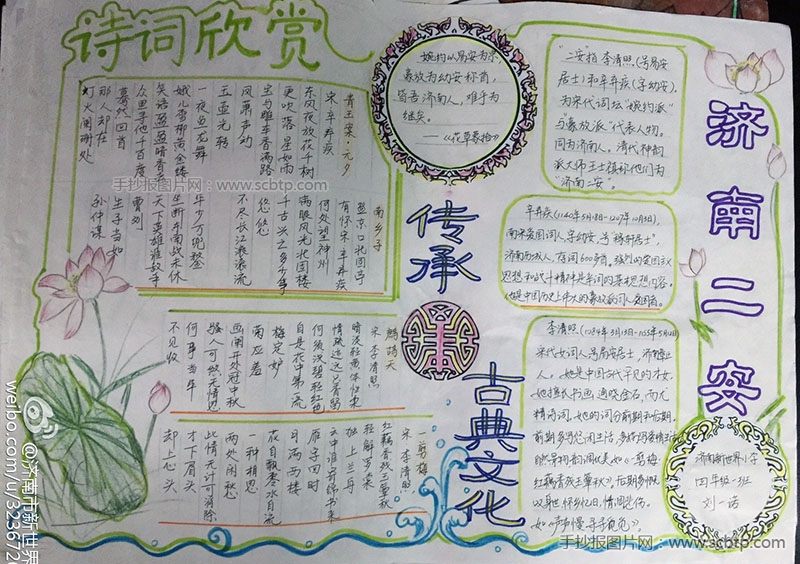 诗词欣赏
青玉案·元夕
宋 辛弃疾
东风夜放花千树
更吹落 星如雨
宝马雕车香满路
凤箫声动
玉壶光转
一夜鱼龙舞
蛾儿雪柳黄金缕
笑语盈盈暗香去
众里寻他千百度
蓦然回首
那人却在
灯火阑珊处
南乡子
登京口北固亭
有怀 宋 辛弃疾
何处望神州
满眼风光北固楼
千古兴亡多少事
悠悠
不尽长江滚滚流
年少万兜鍪
坐断东南战未休
天下英雄谁敌手
曹刘
生子当如
孙仲谋
鹧鸪天
宋 李清照
暗淡轻黄体性柔
情疏迹远只香留
何须浅碧轻红色
自是花中第一流
梅定妒
菊应羞
画阑开处冠中秋
骚人可煞无情思
何事当年
不见收
一剪梅
宋 李清照
红藕香残玉簟秋
轻解罗裳
独上兰舟
云中谁寄锦书来
雁字回时
月满西楼
花自飘零水自流
一种相思
两处闲愁
此情无计可消除
才下眉头
却上心头
婉约以易安为宗,
豪放为幼安称首,
皆吾济南人,难乎为
继矣。
——《花草蒙拾》
传承
古典文化
“二安”指李清照(号易安
居士)和辛弃疾(字幼安),
为宋代词坛“婉约派”
与“豪放派”代表人物。
同为济南人。清代神韵
派大师王士禛称他们为
“济南二安”。
辛弃疾(1140年5月28日-1207年10月3日),
南宋爱国词人,字幼安,号“稼轩居士”,
济南历城人。存词600多首,强烈的爱国主义
思想和战斗精神是辛词的基本思想内容。
他是中国历史上伟大的豪放派词人、爱国者。
李清照(1084年3月13日-1155年5月12日)
宋代女词人,号易安居士,济南章丘
人。她是中国古代罕见的才女,
她擅长书画,通晓金石,而尤
精诗词。她的词分前期和后期。
前期多写悠闲生活,多描写爱情生活、
自然景物,韵调优美如《一剪梅·
红藕香残玉簟秋》。后期多慨叹
以身世,怀乡忆旧,情调悲伤。
如《声声慢·寻寻觅觅》。
济南二安
济南新世界小学
四年级一班
刘一诺
手抄报图片网 - www.scbtp.com
手抄报图片网 - www.scbtp.com
@济南市新世界
weibo.com/u/3236726